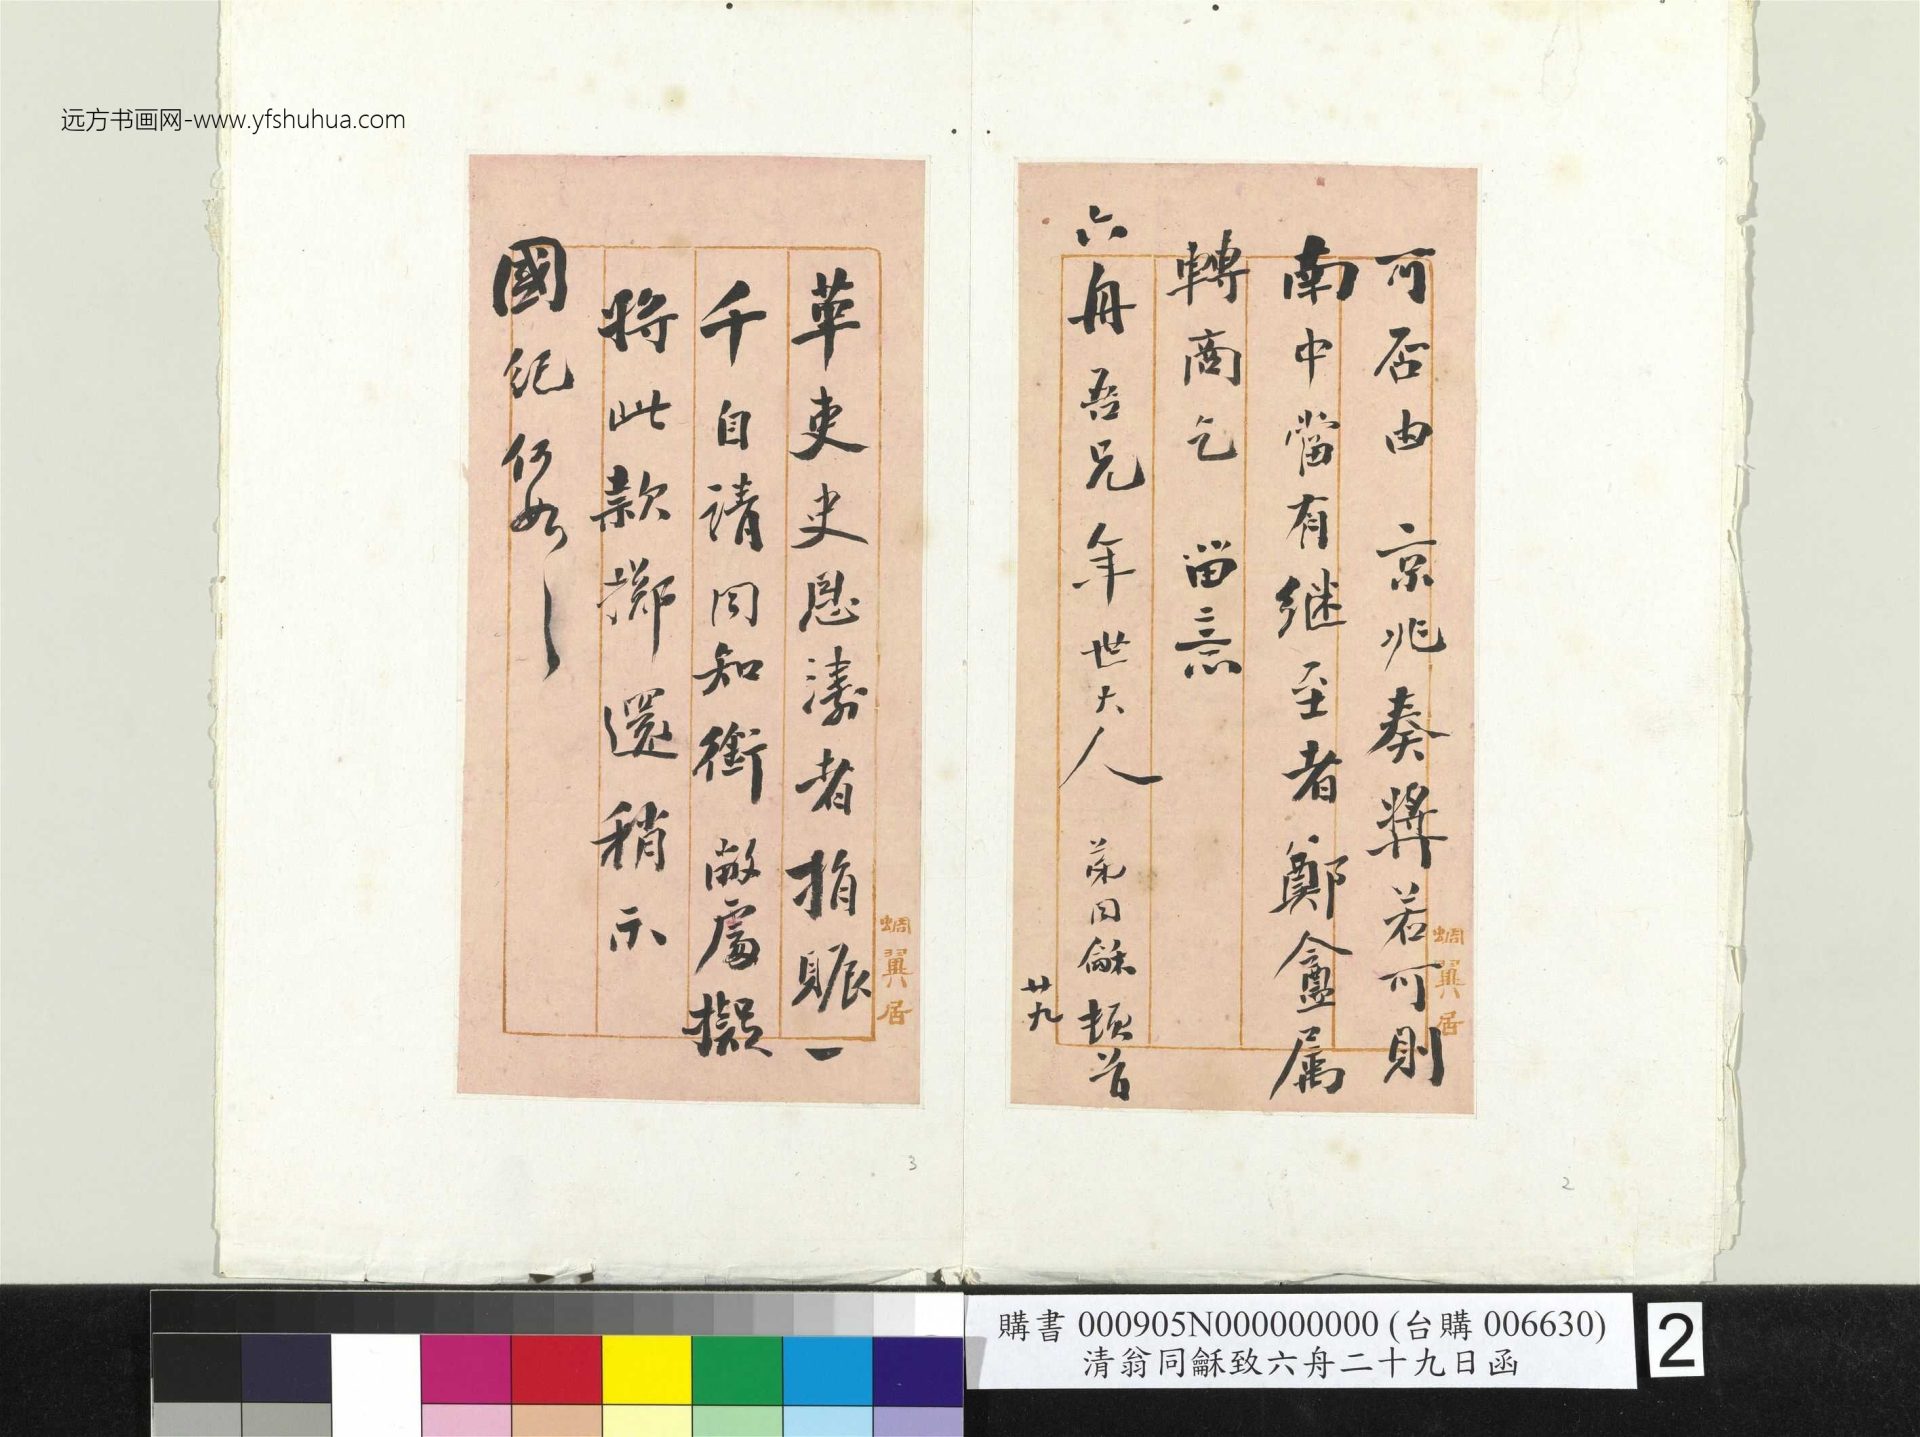 远方书画网-www.yfshuhua.com
可否由 京兆奏奬若可則
南中當有继至者鄭盦属
轉商乞 留意
六舟吾兄年世大人 弟同龢頓首
廿九
蜩翼居
革吏史恩濤者捐賑一
千自請同知銜敝處擬
將此款擲還稍示
國紀何如
蜩翼居
3
2
購書 000905N000000000 (台購 006630)
清翁同龢致六舟二十九日函
2